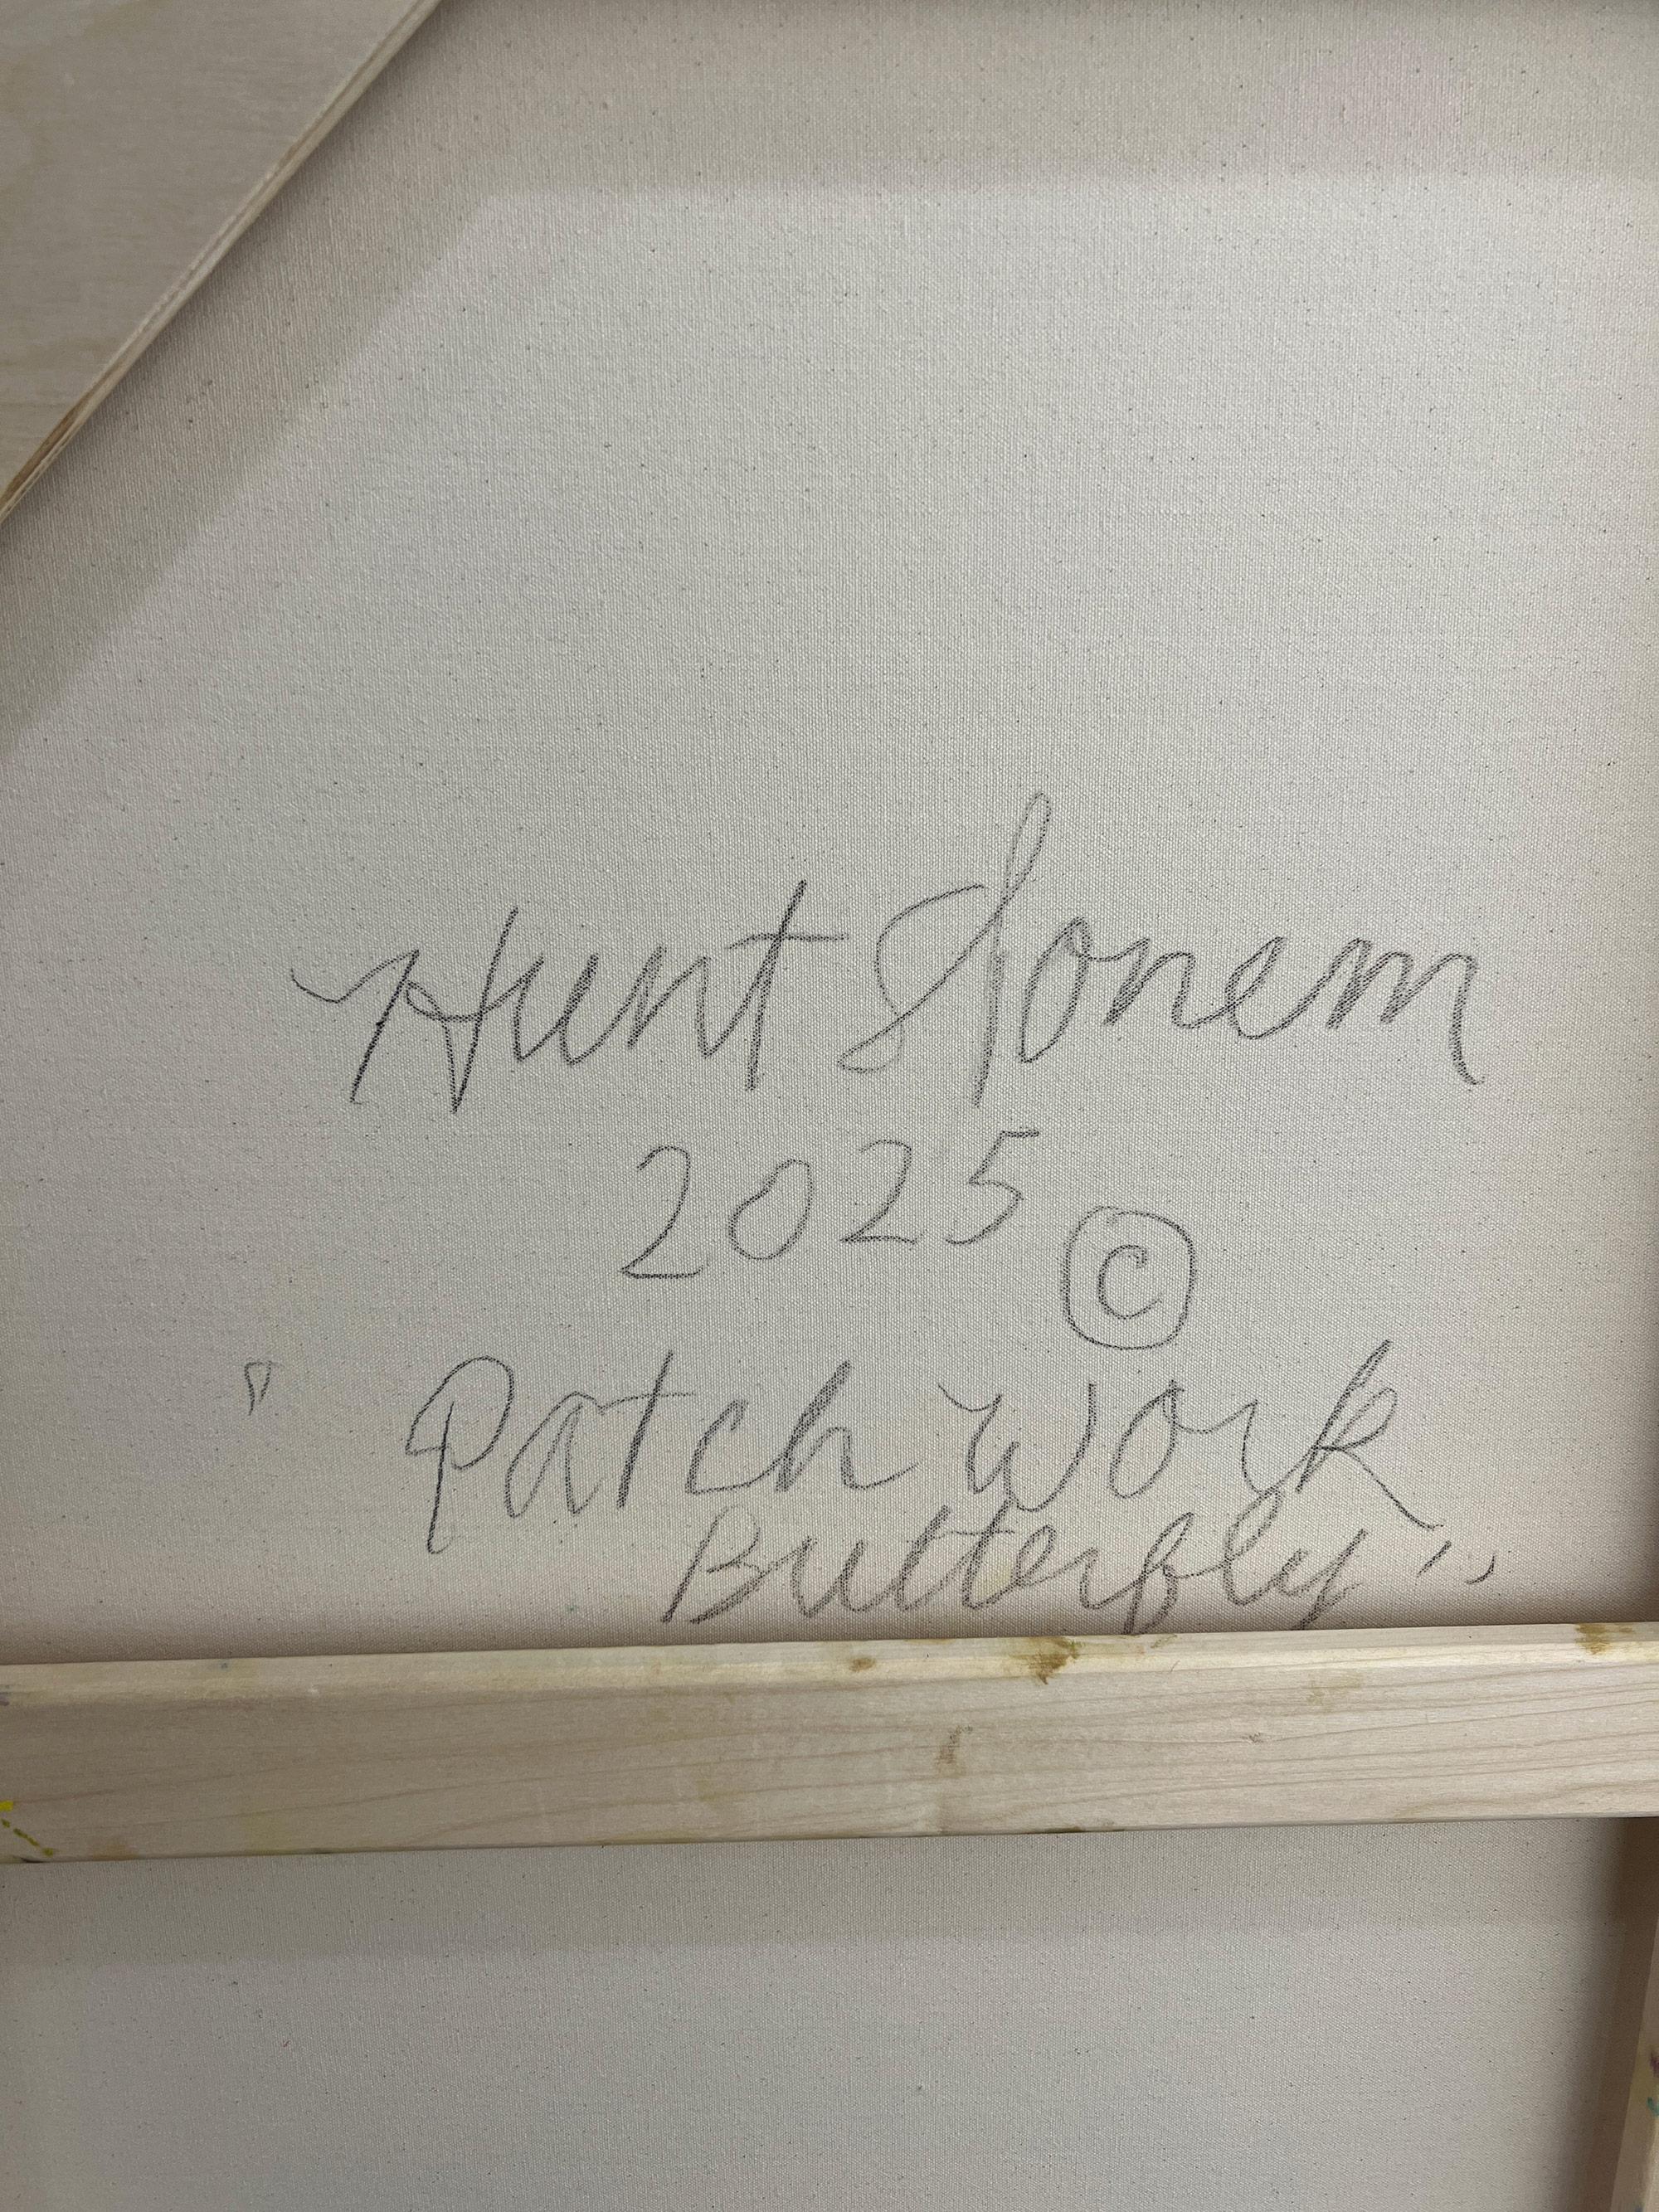 Hunt Slonem
2025 ©
" Patch work
Butterfly "